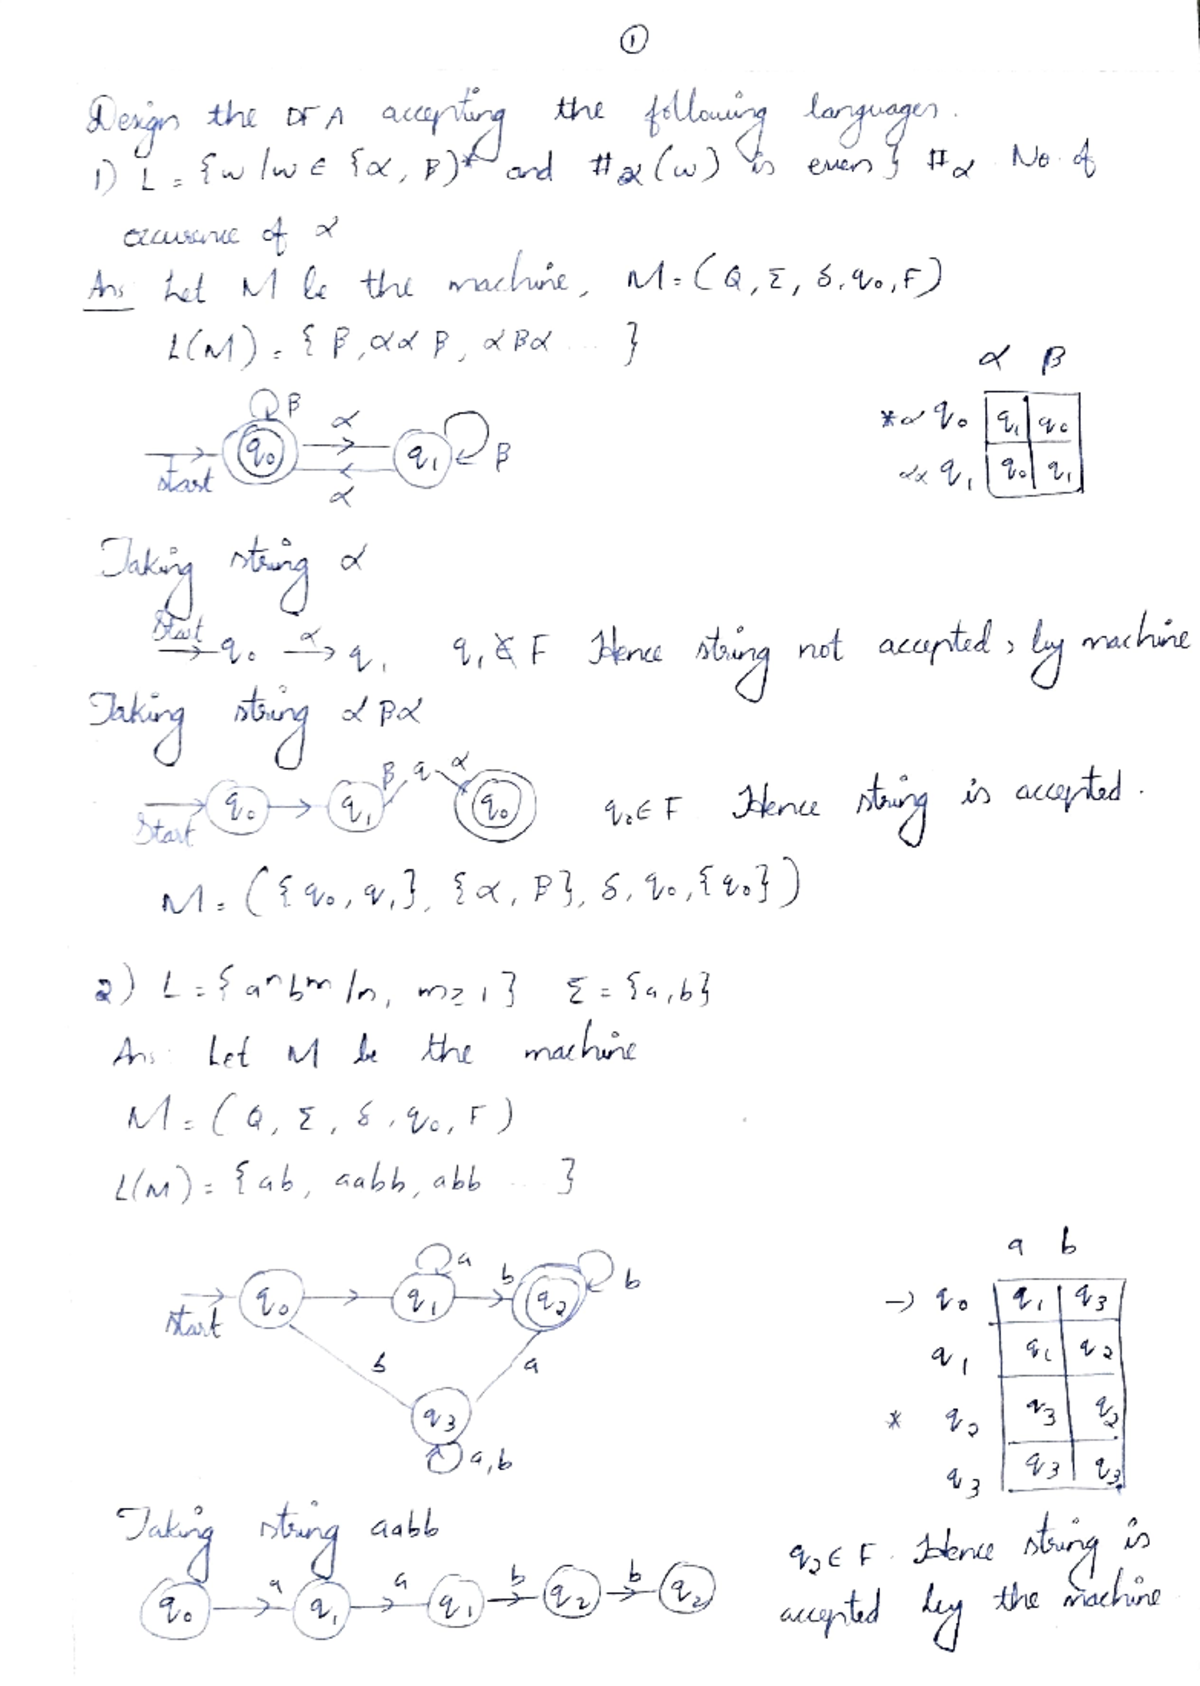 ①
Design the DFA accepting the following languages.
1) L = {w / w ∈ {α, β)* and #α(w) is even} #α No. of
occurence of α
Ans Let M be the machine, M = (Q, Σ, δ, q0, F)
L(M) = { β, αα β, αβα ... }
α β
β
α
*α q0 q1 q0
start q0 q1 β
αα q1 q0 q1
α
Taking string α
Start q0 α q1 q1 ∉ F Hence string not accepted, by machine
Taking string αβα
β q α
Start q0 q1 q0 q0 ∈ F Hence string is accepted.
M = ({q0, q1}, {α, β}, δ, q0, {q0})
2) L = {aⁿbᵐ / n, m ≥ 1} Σ = {a, b}
Ans: Let M be the machine
M = (Q, Σ, δ, q0, F)
L(M) = {ab, aabb, abb ... }
a b
a
start q0 q1 b q2 b
→ q0 q1 q3
b a
q1 q1 q2
q3
* q2 q3 q2
a, b
q3 q3 q3
Taking string aabb
q0 a q1 a q1 b q2 b q2
q2 ∈ F. Hence string is
accepted by the machine